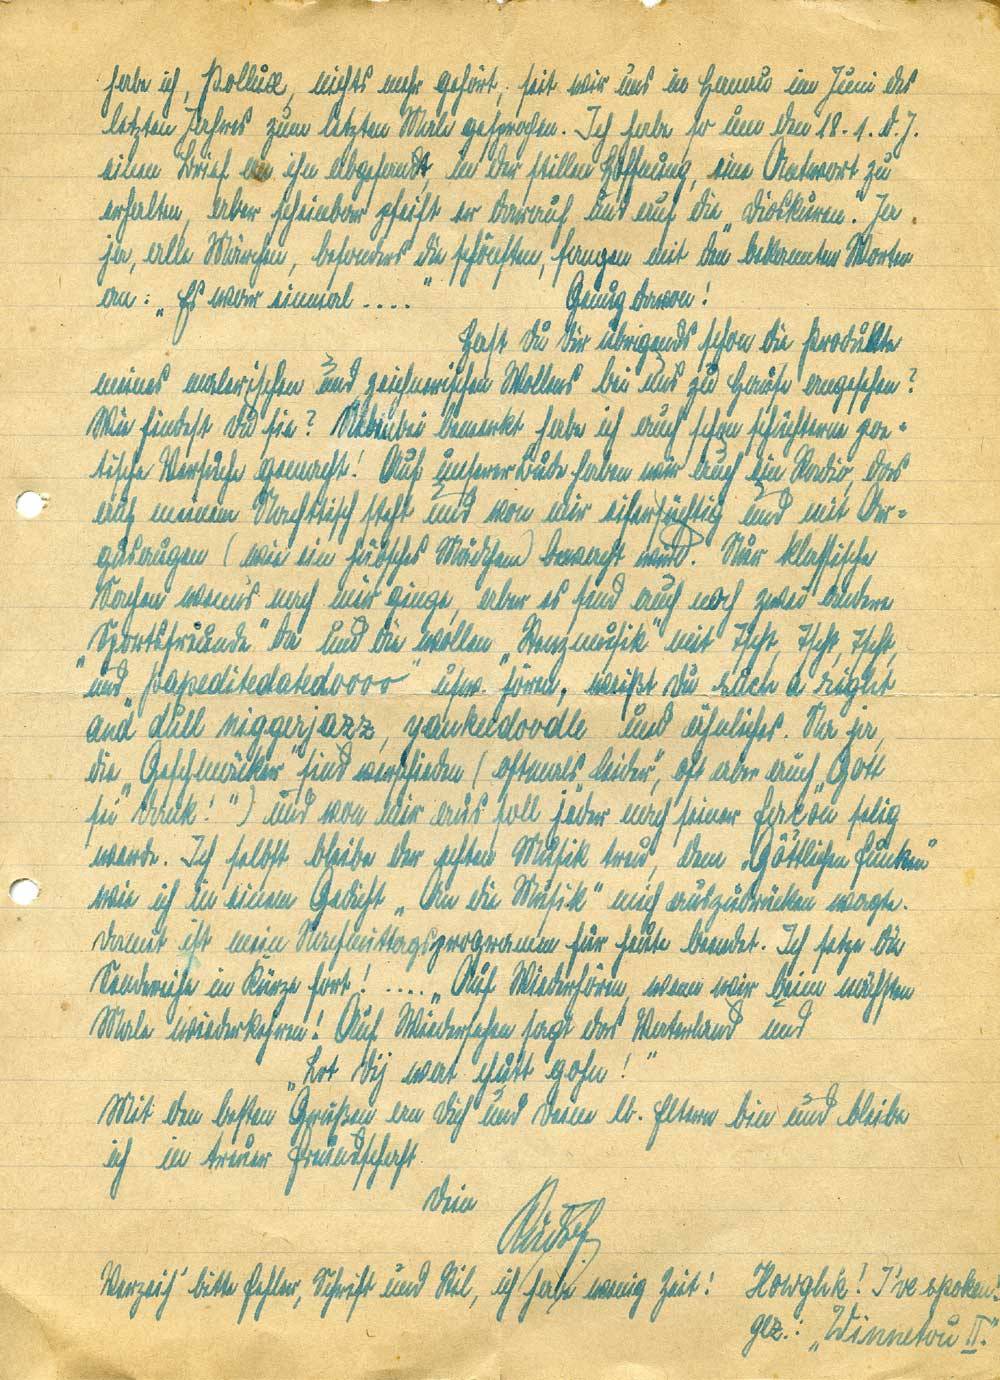 habe ich, Pollux, nichts mehr gehört, seit wir uns in Hanau im Juni des
letzten Jahres zum letzten Male gesprochen. Ich habe so um den 18.1. d.J.
einen Brief an ihn abgesandt, in der stillen Hoffnung, eine Antwort zu
erhalten, aber scheinbar pfeift er darauf und auf die „Dioskuren". Ja
ja, alle Märchen, besonders die schönsten, fangen mit den bekannten Worten
an: „Es war einmal ...." Genug davon!
Hast Du Dir übrigens schon die Produkte
meines malerischen und zeichnerischen Wollens bei uns zu Hause angesehen?
Wie findest Du sie? Nebenbei bemerkt habe ich auch schon schüchterne poe-
tische Versuche gemacht! Auf unserer Bude haben wir auch ein Radio, das
auf meinem Nachttisch steht und von mir eifersüchtig und mit Ar-
gusaugen (wie ein hübsches Mädchen) bewacht wird. Nur klassische
Sachen wenns nach mir ginge, aber es sind auch noch zwei andere
„Sportsfreunde" da und die wollen „Wenzmusik" mit Tscht, Tscht, Tscht,
und „papeditedatedoooo" usw. hören, weißt Du such a right
and dull niggerjazz, yankeedoodle und ähnliches. Na ja,
die „Geschmäcker" sind verschieden (oftmals „leider", oft aber auch „Gott
sei Dank!") und von mir aus soll jeder nach seiner Façon selig
werde. Ich selbst bleibe der echten Musik treu, dem „Göttlichen Funken"
wie ich in einem Gedicht „An die Musik" mich auszudrücken wagte.
Damit ist mein Nachmittagsprogramm für heute beendet. Ich setze die
Sendereihe in Kürze fort! .... „Auf Wiederhören, wenn wir beim nächsten
Male wiederkehren! Auf Wiedersehen sagt das Vaterland und
„Lot Dij wat chutt gohn!"
Mit den besten Grüßen an Dich und Deine lb. Eltern bin und bleibe
ich in treuer Freundschaft
Dein
Rudolf
Verzeih' bitte Fehler, Schrift und Stil, ich habe wenig Zeit! Howghk! I've spoken!
gez.: „Winnetou II."